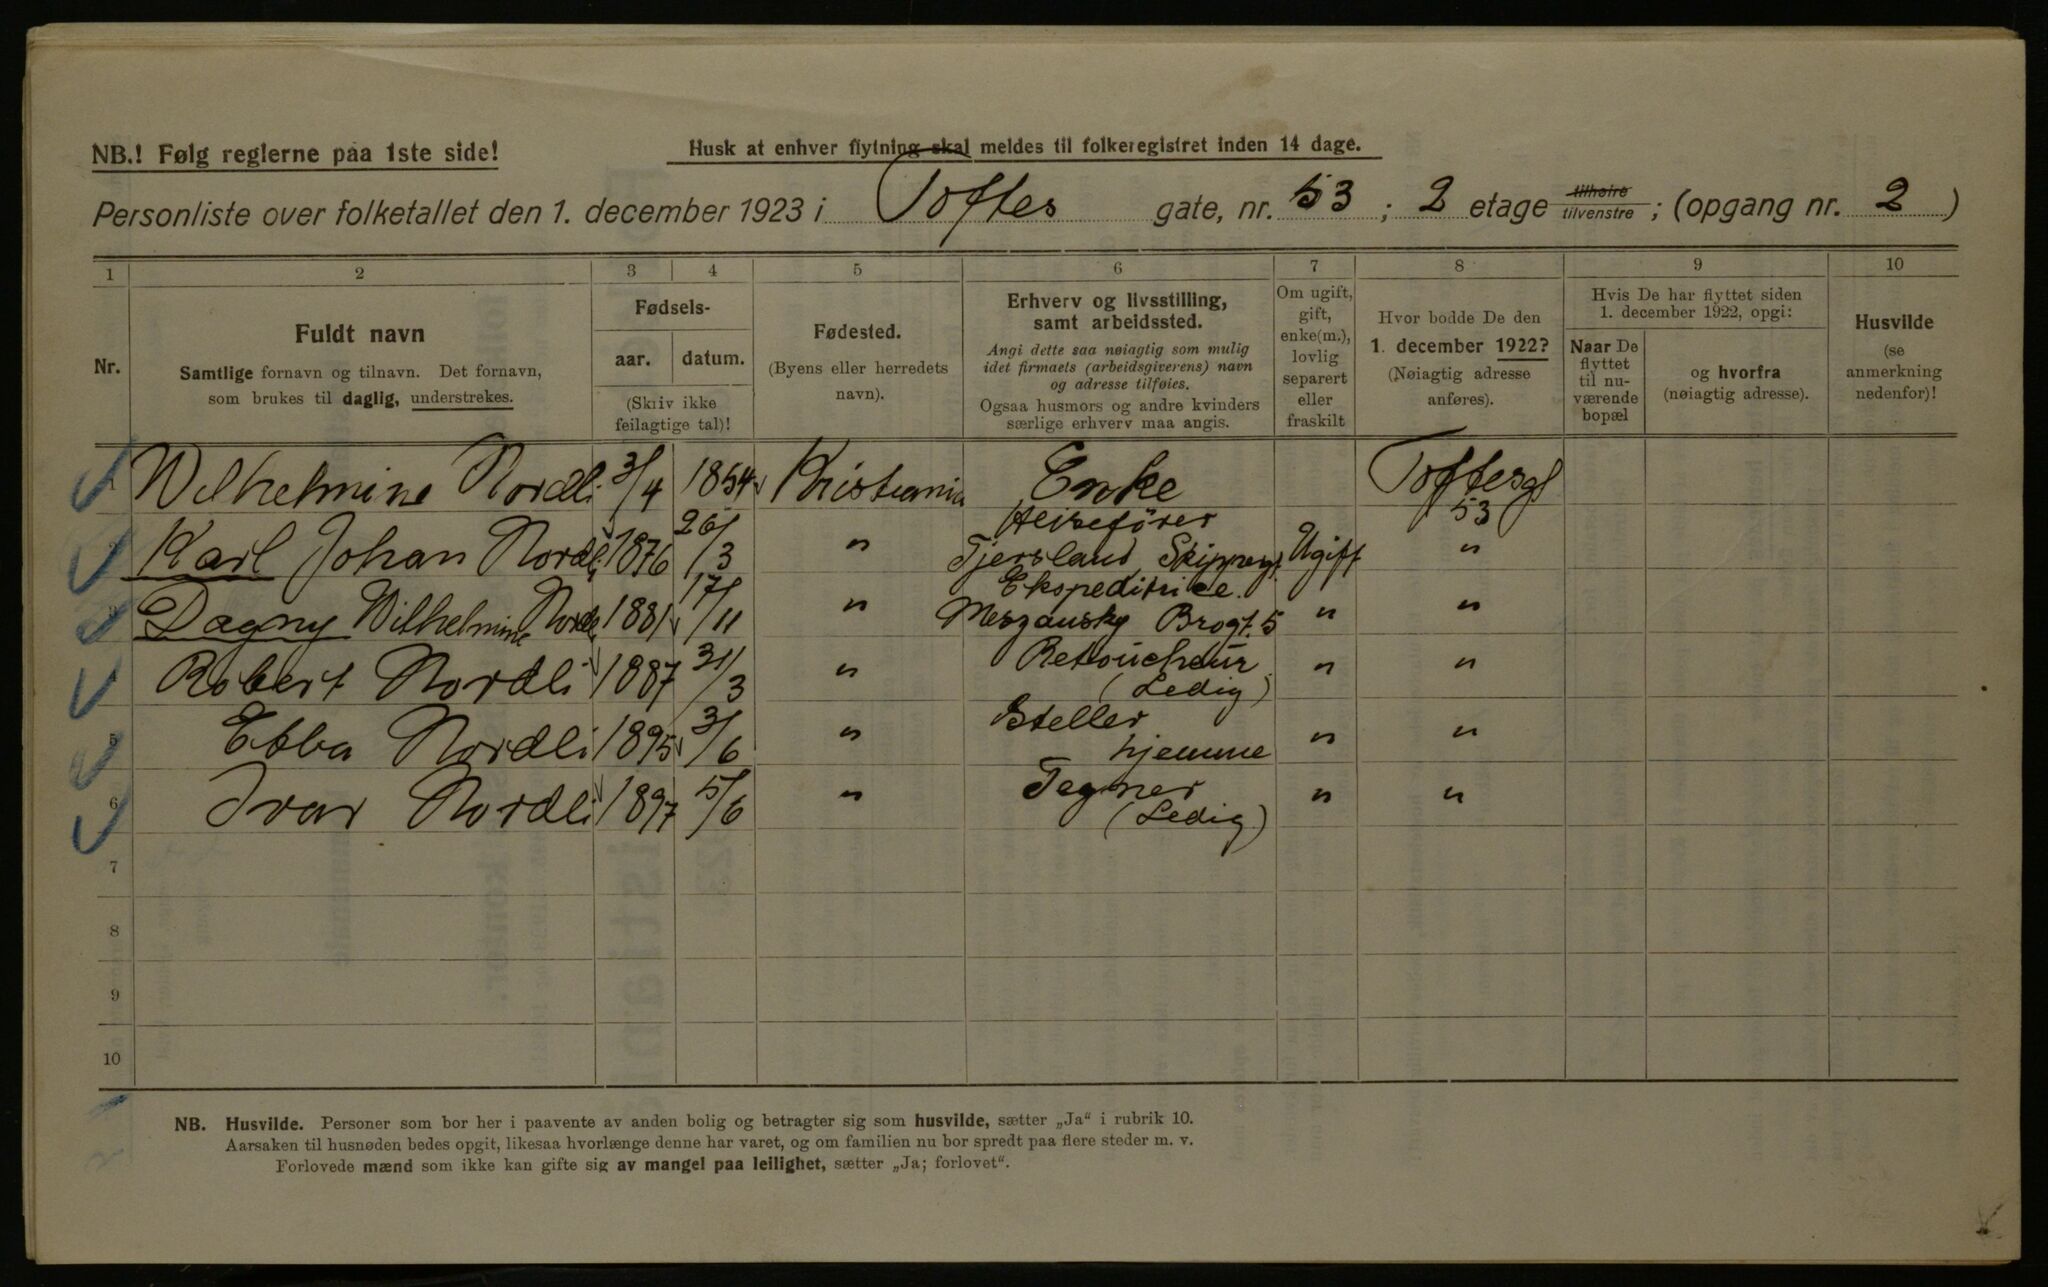 NB.! Følg reglerne paa 1ste side!
Husk at enhver flytning skal meldes til folkeregistret inden 14 dage.
Personliste over folketallet den 1. december 1923 i Toftes gate, nr. 53 ; 2 etage tilhøire tilvenstre ; (opgang nr. 2 )
1 2 3 4 5 6 7 8 9 10
Nr.
Fuldt navn
Samtlige fornavn og tilnavn. Det fornavn,
som brukes til daglig, understrekes.
Fødsels-
aar. datum.
(Skriv ikke
feilagtige tal)!
Fødested.
(Byens eller herredets
navn).
Erhverv og livsstilling,
samt arbeidssted.
Angi dette saa nøiagtig som mulig
idet firmaets (arbeidsgiverens) navn
og adresse tilføies.
Ogsaa husmors og andre kvinders
særlige erhverv maa angis.
Om ugift,
gift,
enke(m.),
lovlig
separert
eller
fraskilt
Hvor bodde De den
1. december 1922?
(Nøiagtig adresse
anføres).
Hvis De har flyttet siden
1. december 1922, opgi:
Naar De
flyttet
til nu-
værende
bopæl
og hvorfra
(nøiagtig adresse).
Husvilde
(se
anmerkning
nedenfor)!
1 Wilhelmine Nordli 3/4 1854 Kristiania Enke Toftesgt 53
2 Karl Johan Nordli 1876 26/3 " Heisefører Tjersland Skippergt. Ugift "
3 Dagny Wilhelmine Nordli 1881 17/11 " Ekspeditrice. Brogt. 5 " "
4 Robert Nordli 1887 31/3 " Retouchør (Ledig) " "
5 Ebba Nordli 1895 3/6 " Steller hjemme " "
6 Ivar Nordli 1897 5/6 " Tegner (Ledig) " "
7
8
9
10
NB. Husvilde. Personer som bor her i paavente av anden bolig og betragter sig som husvilde, sætter „Ja“ i rubrik 10.
Aarsaken til husnøden bedes opgit, likesaa hvorlænge denne har varet, og om familien nu bor spredt paa flere steder m. v.
Forlovede mænd som ikke kan gifte sig av mangel paa leilighet, sætter „Ja; forlovet“.